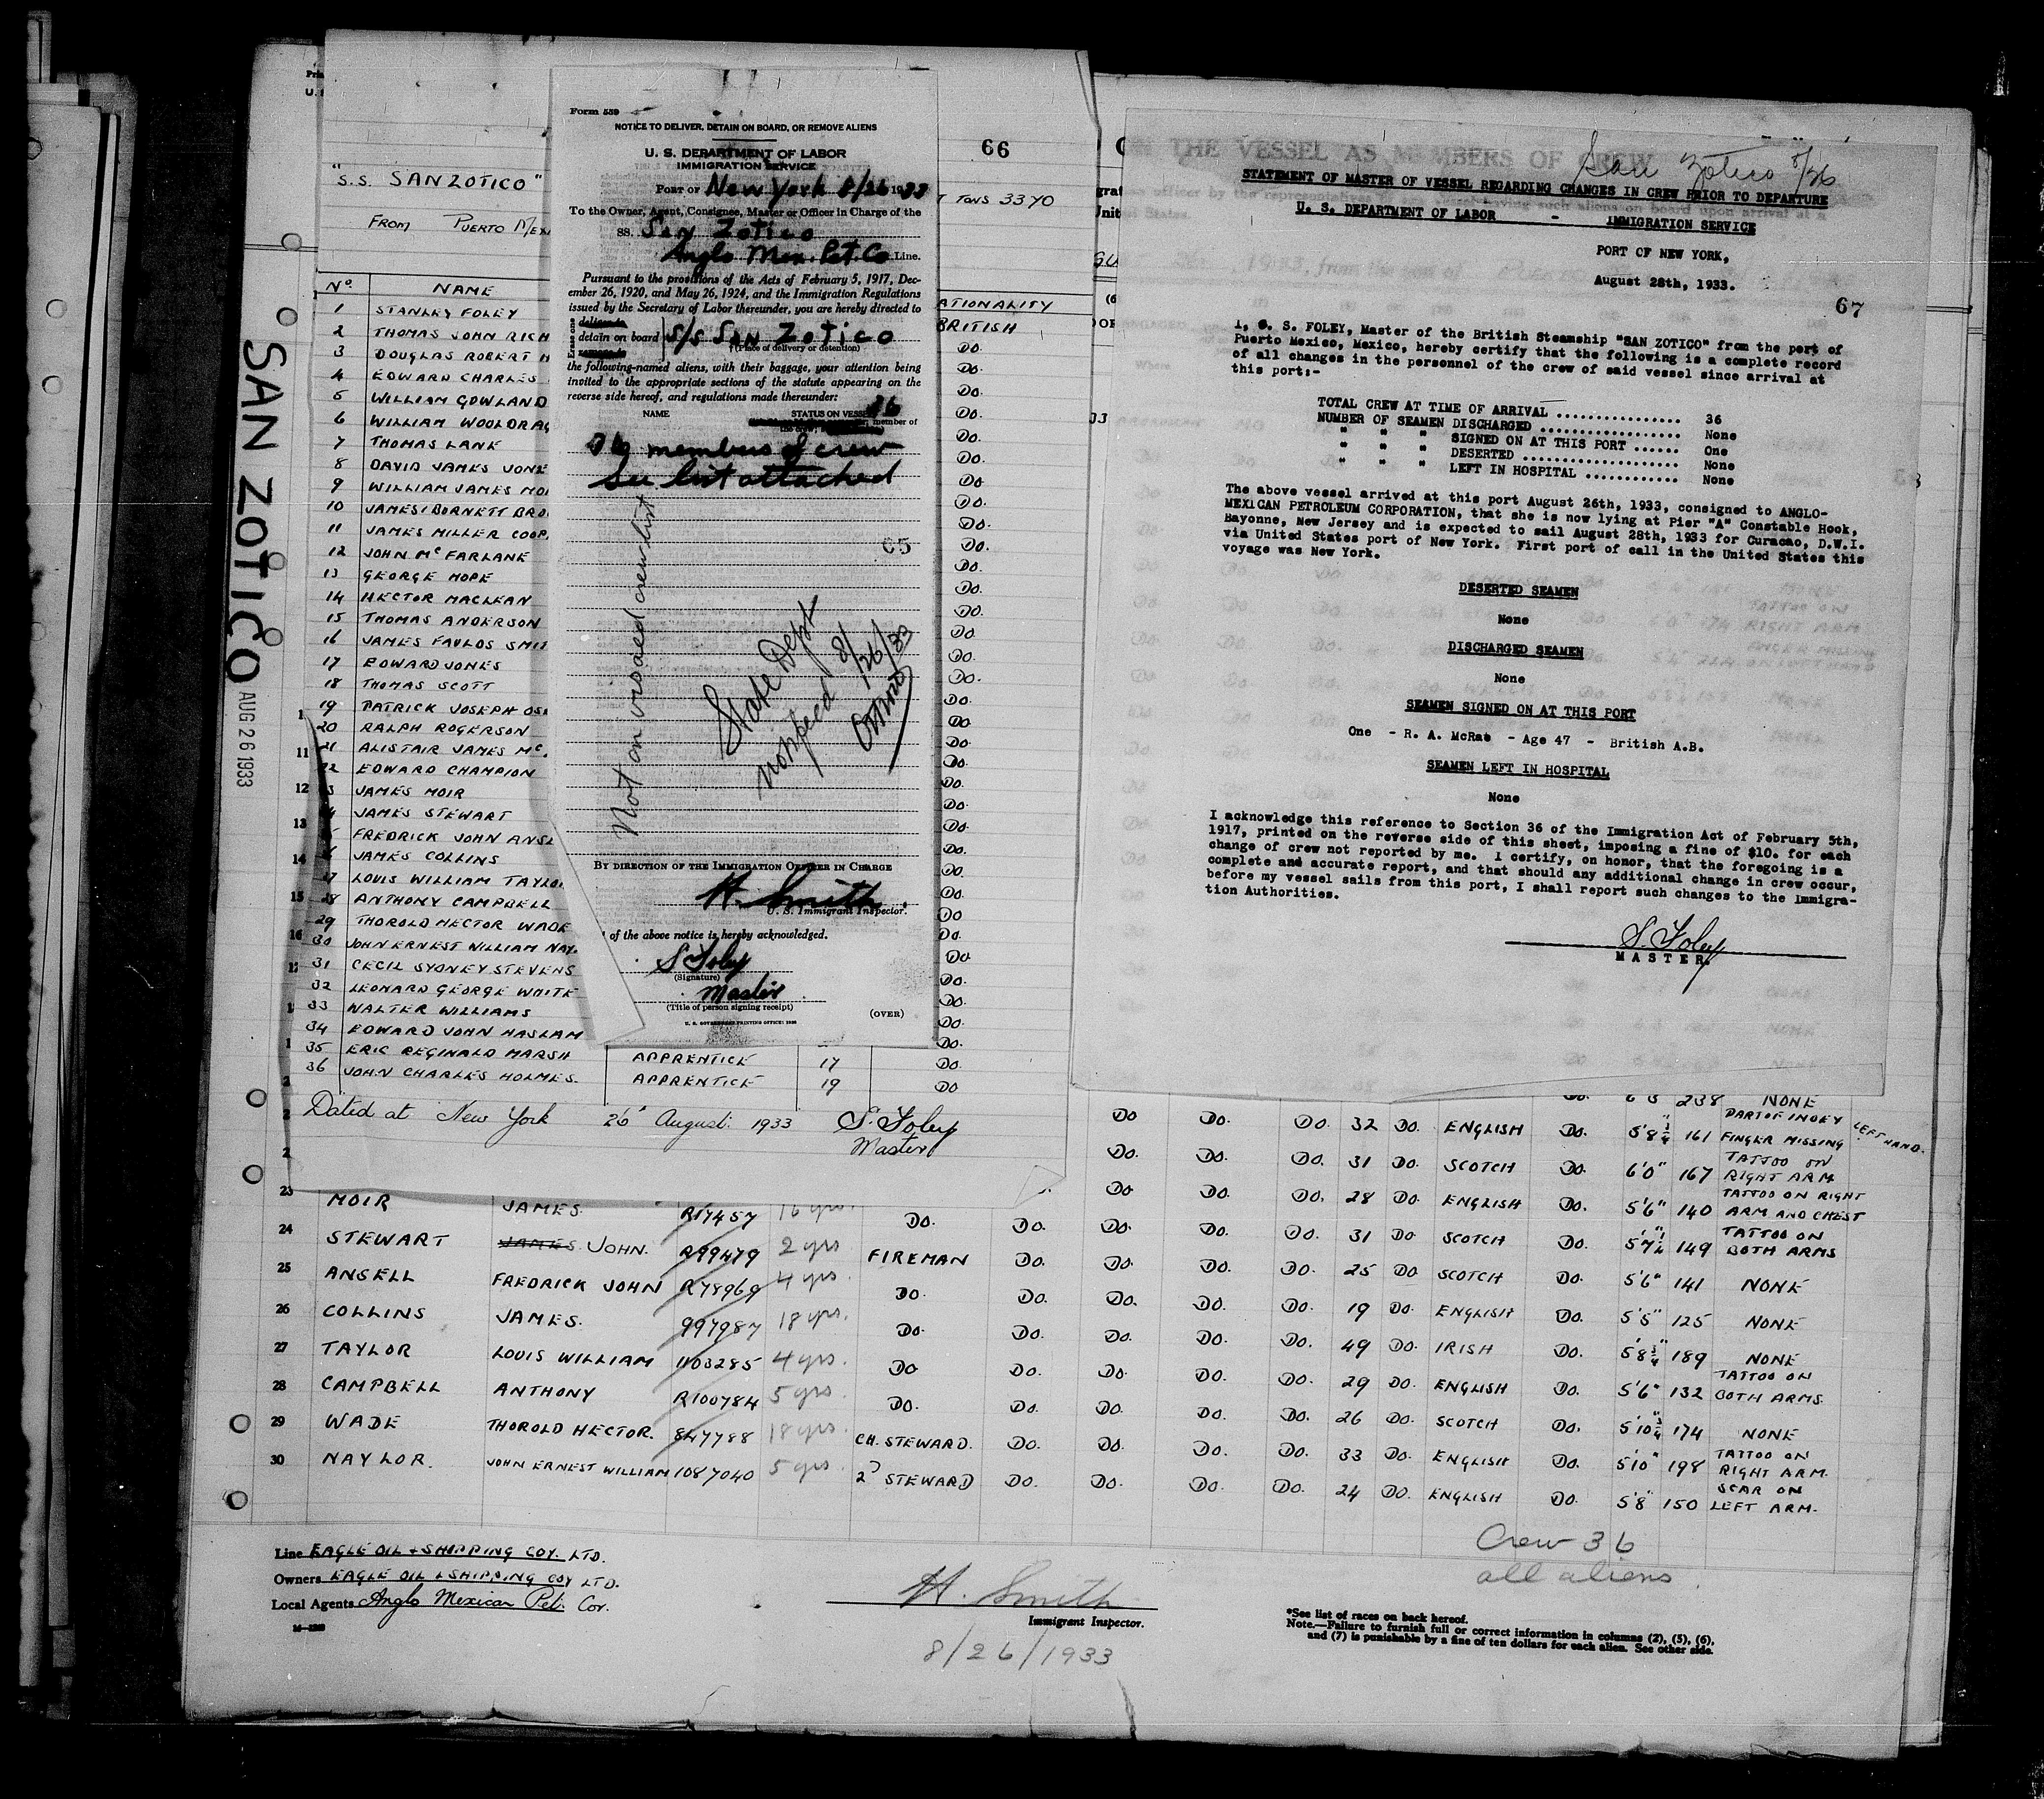 SAN ZOTICO
AUG 26 1933
66
"S.S. SAN ZOTICO"
T TONS 3370
FROM PUERTO MEX
No. NAME
ATIONALITY
1 STANLEY FOLEY BRITISH
2 THOMAS JOHN RICH DO.
3 DOUGLAS ROBERT H DO.
4 EDWARD CHARLES DO.
5 WILLIAM GOWLAND DO.
6 WILLIAM WOOLDRAG DO.
7 THOMAS LANE DO.
8 DAVID JAMES JONE DO
9 WILLIAM JAMES MO DO.
10 JAMES BURNETT BRO DO.
11 JAMES MILLER COOP DO.
12 JOHN McFARLANE DO.
13 GEORGE HOPE DO.
14 HECTOR MACLEAN DO.
15 THOMAS ANDERSON DO
16 JAMES FAULDS SMIT DO.
17 EDWARD JONES DO.
18 THOMAS SCOTT DO
19 PATRICK JOSEPH DO
20 RALPH ROGERSON DO
21 ALISTAIR JAMES Mc DO.
22 EDWARD CHAMPION DO.
23 JAMES MOIR DO.
24 JAMES STEWART DO.
25 FREDRICK JOHN ANSE DO.
26 JAMES COLLINS DO.
27 LOUIS WILLIAM TAYLO DO.
28 ANTHONY CAMPBELL DO
29 THOROLD HECTOR WADE DO.
30 JOHN ERNEST WILLIAM NAY DO
31 CECIL SYDNEY STEVENS DO.
32 LEONARD GEORGE WHITE DO.
33 WALTER WILLIAMS DO.
34 EDWARD JOHN HASLAM DO.
35 ERIC REGINALD MARSH APPRENTICE 17 DO.
36 JOHN CHARLES HOLMES. APPRENTICE 19 DO
Dated at New York 26 August: 1933 S. Foley
Master
Form 539
NOTICE TO DELIVER, DETAIN ON BOARD, OR REMOVE ALIENS
U. S. DEPARTMENT OF LABOR
IMMIGRATION SERVICE
PORT OF New York 8/26 1933
To the Owner, Agent, Consignee, Master or Officer in Charge of the
SS. San Zotico
Anglo Mex. Pet. Co Line.
Pursuant to the provisions of the Acts of February 5, 1917, Dec-
ember 26, 1920, and May 26, 1924, and the Immigration Regulations
issued by the Secretary of Labor thereunder, you are hereby directed to
Erase one
deliver to
detain on board S/S SAN ZOTICO
remove to
†(Place of delivery or detention)
the following-named aliens, with their baggage, your attention being
invited to the appropriate sections of the statute appearing on the
reverse side hereof, and regulations made thereunder:
NAME STATUS ON VESSEL
36
member of
36 members of crew
See list attached
Not on visaed crew list
65
State Dept
notified 8/26/33
BY DIRECTION OF THE IMMIGRATION OFFICER IN CHARGE
H. Smith
U. S. Immigrant Inspector.
of the above notice is hereby acknowledged.
S Foley
(Signature)
Master
(Title of person signing receipt)
(OVER)
U. S. GOVERNMENT PRINTING OFFICE: 1932
THE VESSEL AS MEMBERS OF CREW
San Zotico 8/26
STATEMENT OF MASTER OF VESSEL REGARDING CHANGES IN CREW PRIOR TO DEPARTURE
U. S. DEPARTMENT OF LABOR - IMMIGRATION SERVICE
PORT OF NEW YORK,
August 28th, 1933.
67
I, S. S. FOLEY, Master of the British Steamship "SAN ZOTICO" from the port of
Puerto Mexico, Mexico, hereby certify that the following is a complete record
of all changes in the personnel of the crew of said vessel since arrival at
this port:-
TOTAL CREW AT TIME OF ARRIVAL ................ 36
NUMBER OF SEAMEN DISCHARGED ................... None
" " " SIGNED ON AT THIS PORT ...... One
" " " DESERTED ..................... None
" " " LEFT IN HOSPITAL ............. None
The above vessel arrived at this port August 26th, 1933, consigned to ANGLO-
MEXICAN PETROLEUM CORPORATION, that she is now lying at Pier "A" Constable Hook,
Bayonne, New Jersey and is expected to sail August 28th, 1933 for Curacao, D.W.I.
via United States port of New York. First port of call in the United States this
voyage was New York.
DESERTED SEAMEN
None
DISCHARGED SEAMEN
None
SEAMEN SIGNED ON AT THIS PORT
One - R. A. McRae - Age 47 - British A.B.
SEAMEN LEFT IN HOSPITAL
None
I acknowledge this reference to Section 36 of the Immigration Act of February 5th,
1917, printed on the reverse side of this sheet, imposing a fine of $10. for each
change of crew not reported by me. I certify, on honor, that the foregoing is a
complete and accurate report, and that should any additional change in crew occur,
before my vessel sails from this port, I shall report such changes to the Immigra-
tion Authorities.
S Foley
MASTER.
DO. 6'3 238 NONE
DO DO. DO. 32 DO. ENGLISH DO. 5'8 1/4" 161 PART OF INDEX FINGER MISSING LEFT HAND.
DO. DO. DO. 31 DO. SCOTCH DO. 6'0" 167 TATTOO ON RIGHT ARM
DO DO. DO. 28 DO. ENGLISH DO. 5'6" 140 TATTOO ON RIGHT ARM AND CHEST
23 MOIR JAMES. R17457 16 yrs. DO. DO. DO. DO. DO. 31 DO SCOTCH DO. 5'7 1/4" 149 TATTOO ON BOTH ARMS
24 STEWART JAMES JOHN. R99479 2 yrs FIREMAN DO. DO. DO. DO. 25 DO SCOTCH DO. 5'6" 141 NONE
25 ANSELL FREDRICK JOHN R78969 4 yrs. DO. DO. DO. DO. DO. 19 DO. ENGLISH DO. 5'5" 125 NONE
26 COLLINS JAMES. 997987 18 yrs. DO. DO. DO. DO. DO. 49 DO. IRISH DO. 5'8 3/4" 189 NONE
27 TAYLOR LOUIS WILLIAM 1103285 4 yrs. DO DO. DO. DO. DO. 29 DO. ENGLISH DO. 5'6" 132 TATTOO ON BOTH ARMS.
28 CAMPBELL ANTHONY R100784 5 yrs. DO. DO. DO. DO. DO. 26 DO. SCOTCH DO. 5'10 3/4" 174 NONE
29 WADE THOROLD HECTOR. 847788 18 yrs. CH. STEWARD. DO. DO. DO. DO. 33 DO. ENGLISH DO. 5'10" 198 TATTOO ON RIGHT ARM.
30 NAYLOR. JOHN ERNEST WILLIAM 1087040 5 yrs. 2D STEWARD DO. DO. DO. DO. 24 DO. ENGLISH DO. 5'8" 150 SCAR ON LEFT ARM.
Crew 36
all aliens.
Line EAGLE OIL & SHIPPING COY. LTD.
Owners EAGLE OIL & SHIPPING COY LTD.
Local Agents Anglo Mexican Pet. Cor.
H. Smith
Immigrant Inspector.
8/26/1933
*See list of races on back hereof.
Note.—Failure to furnish full or correct information in columns (2), (5), (6),
and (7) is punishable by a fine of ten dollars for each alien. See other side.